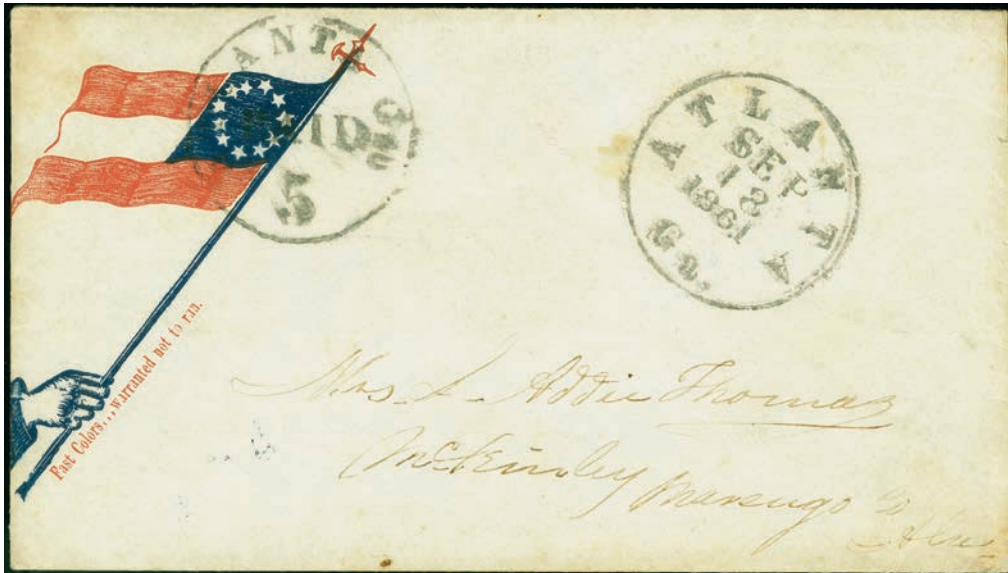 ATLANTA GEO
PAID
5
ATLANTA Ga.
SEP
18
1861
Fast Colors... warranted not to run.
Mrs. A. Addie Thomas
McKinley Marengo Co
Ala